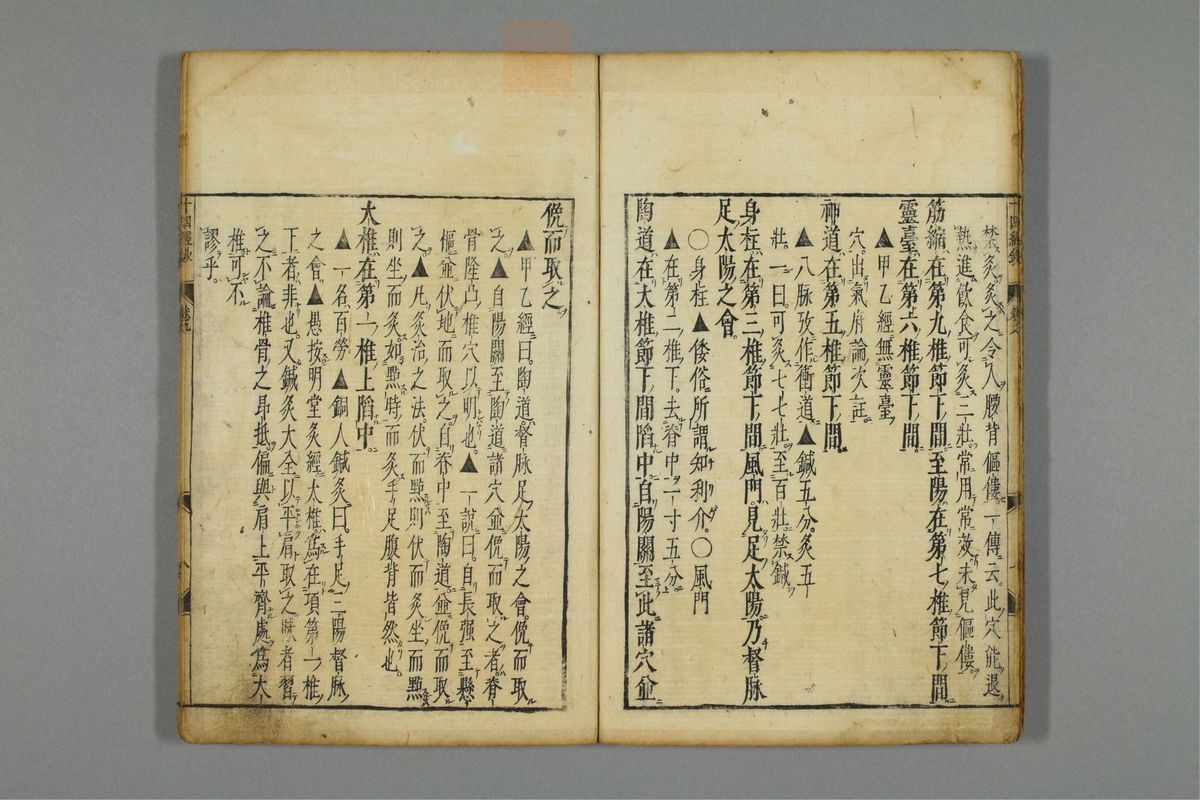 禁灸灸之令人腰背傴僂一傳云此穴能退
熱進飲食可灸三壯常用常效未見傴僂
筋縮在第九椎節下間至陽在第七椎節下間
靈臺在第六椎節下間
▲甲乙經無靈臺
穴出氣府論次註
神道在第五椎節下間
▲八脉攷作衝道▲鍼五分灸五
壯一曰可灸七七壯至百壯禁鍼
身柱在第三椎節下間風門見足太陽乃督脉
足太陽之會
〇身柱▲倭俗所謂知利介〇風門
▲在第二椎下去脊中一寸五分
陶道在大椎節下間陷中自陽關至此諸穴並
俛而取之
▲甲乙經曰陶道督脉足太陽之會俛而取
之▲自陽關至陶道諸穴並俛而取之者脊
骨隆凸椎穴以明也▲一說曰自長强至懸
樞並伏地而取之自脊中至陶道並俛而取
之▲凡灸治之法伏而點則伏而灸坐而點
則坐而灸如點時而灸手足腹背皆然也
大椎在第一椎上陷中
▲一名百勞▲銅人鍼灸曰手足三陽督脉
之會▲愚按明堂灸經大椎爲在項第一椎
下者非也又鍼灸大全以平肩取之昧者習
之不論椎骨之昂抵偏與肩上平齊處爲大
椎可不
謬乎